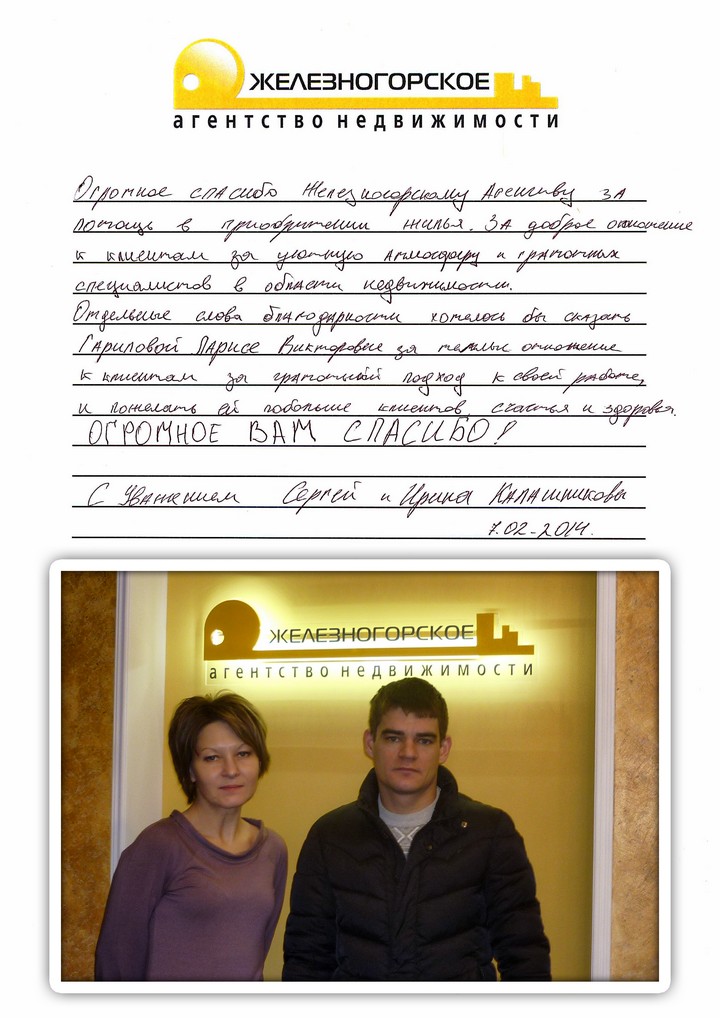 ЖЕЛЕЗНОГОРСКОЕ
агентство недвижимости
Огромное спасибо Железногорскому Агенству за
помощь в приобритении жилья. За доброе отношение
к клиентам за уютную атмосферу и граммотных
специалистов в области недвижимости.
Отдельные слова благодарности хотелось бы сказать
Гариловой Ларисе Викторовне за теплые отношение
к клиентам за грамотный подход к своей работе,
и пожелать ей побольше клиентов, счастья и здоровья.
ОГРОМНОЕ ВАМ СПАСИБО!
С Уважением Сергей и Ирина Калашниковы
7.02-2014.
ЖЕЛЕЗНОГОРСКОЕ
агентство недвижимости